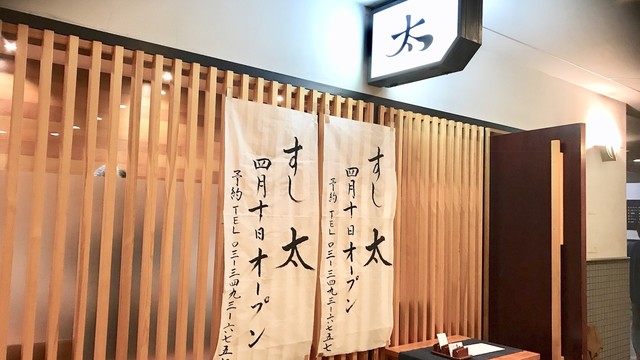 太
すし 太
四月十日オープン
予約 TEL 〇三ー三四九三ー六七五七
すし 太
四月十日オープン
予約 TEL 〇三ー三四九三ー六七五